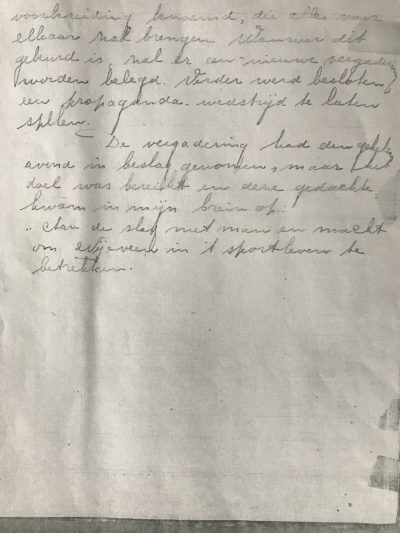 voorbereiding benoemd, die alles voor
elkaar zal brengen. Wanneer dit
gebeurd is, zal er een nieuwe vergadering
worden belegd. Verder werd besloten
een propaganda-wedstrijd te laten
spelen.
De vergadering had den geheelen
avond in beslag genomen, maar het
doel was bereikt en deze gedachte
kwam in mijn brein op:
„Aan de slag met man en macht
om in 't sportleven te
betrekken.